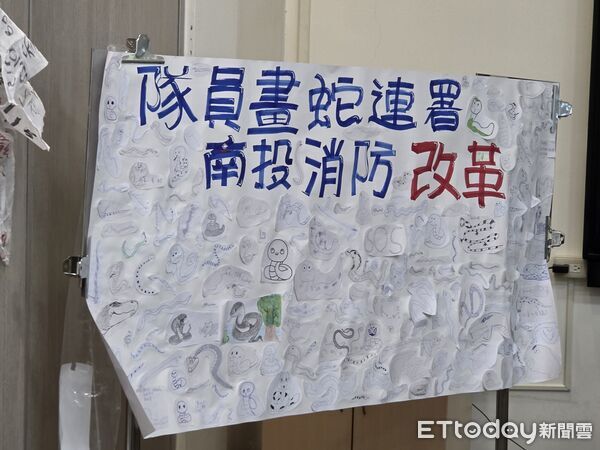 隊員畫蛇連署
南投消防改革
SOS
ETtoday新聞雲